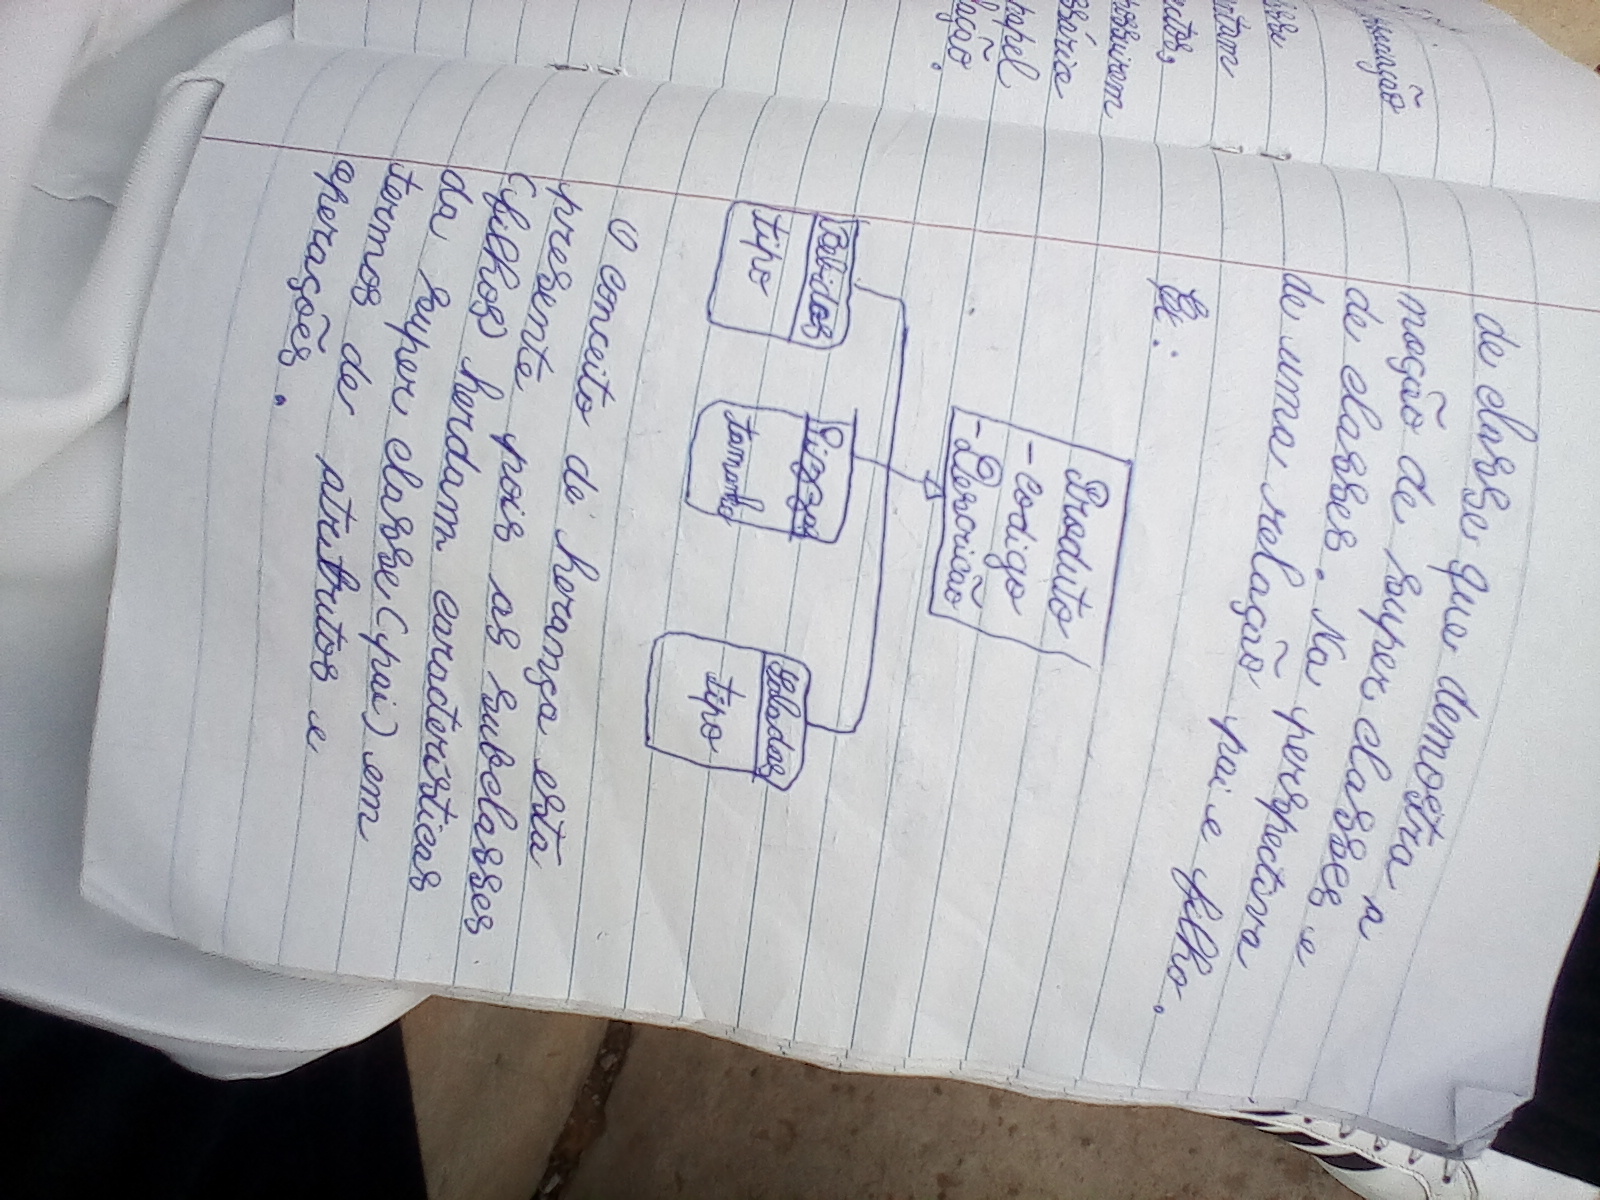 de classe, que demostra a
noção de super classes e
de classes. Na perspectiva
de uma relação pai e filho.
Ex:
Produto
- codigo
- Descrição
Bebidas
tipo
Pizzas
tamanho
Saladas
tipo
O conceito de herança está
presente pois as subclasses
(filhos) herdam caracteristicas
da super classe (pai) em
termos de atributos e
operações.
ntam
possuirem
ssária
papel